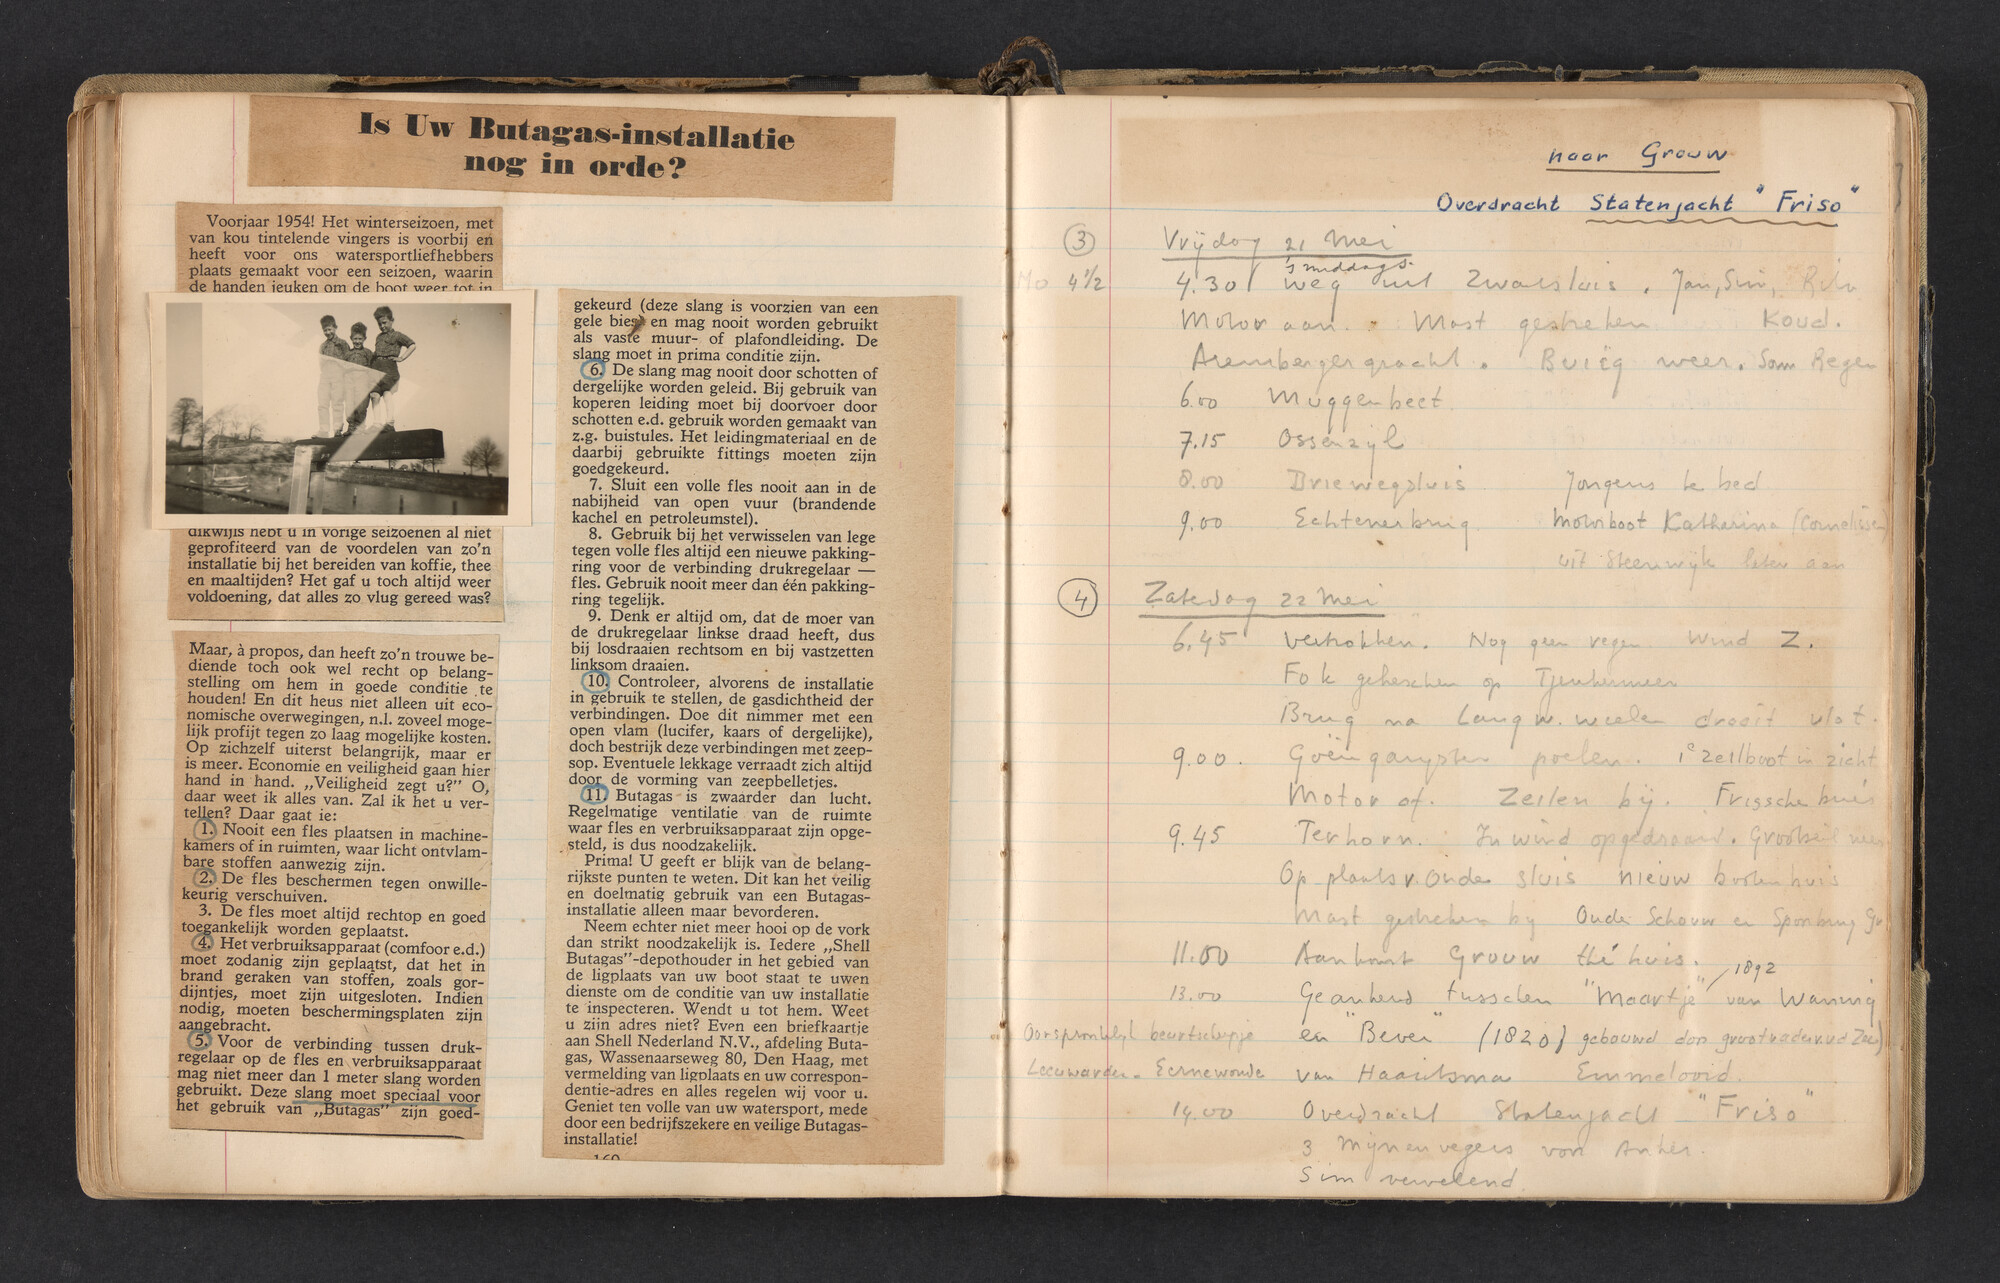 Is Uw Butagas-installatie
nog in orde?
Voorjaar 1954! Het winterseizoen, met
van kou tintelende vingers is voorbij en
heeft voor ons watersportliefhebbers
plaats gemaakt voor een seizoen, waarin
de handen jeuken om de boot weer tot in
dikwijls hebt u in vorige seizoenen al niet
geprofiteerd van de voordelen van zo'n
installatie bij het bereiden van koffie, thee
en maaltijden? Het gaf u toch altijd weer
voldoening, dat alles zo vlug gereed was?
Maar, à propos, dan heeft zo'n trouwe be-
diende toch ook wel recht op belang-
stelling om hem in goede conditie te
houden! En dit heus niet alleen uit eco-
nomische overwegingen, n.l. zoveel moge-
lijk profijt tegen zo laag mogelijke kosten.
Op zichzelf uiterst belangrijk, maar er
is meer. Economie en veiligheid gaan hier
hand in hand. „Veiligheid zegt u?” O,
daar weet ik alles van. Zal ik het u ver-
tellen? Daar gaat ie:
1. Nooit een fles plaatsen in machine-
kamers of in ruimten, waar licht ontvlam-
bare stoffen aanwezig zijn.
2. De fles beschermen tegen onwille-
keurig verschuiven.
3. De fles moet altijd rechtop en goed
toegankelijk worden geplaatst.
4. Het verbruiksapparaat (comfoor e.d.)
moet zodanig zijn geplaatst, dat het in
brand geraken van stoffen, zoals gor-
dijntjes, moet zijn uitgesloten. Indien
nodig, moeten beschermingsplaten zijn
aangebracht.
5. Voor de verbinding tussen druk-
regelaar op de fles en verbruiksapparaat
mag niet meer dan 1 meter slang worden
gebruikt. Deze slang moet speciaal voor
het gebruik van „Butagas” zijn goed-
gekeurd (deze slang is voorzien van een
gele bies) en mag nooit worden gebruikt
als vaste muur- of plafondleiding. De
slang moet in prima conditie zijn.
6. De slang mag nooit door schotten of
dergelijke worden geleid. Bij gebruik van
koperen leiding moet bij doorvoer door
schotten e.d. gebruik worden gemaakt van
z.g. buistules. Het leidingmateriaal en de
daarbij gebruikte fittings moeten zijn
goedgekeurd.
7. Sluit een volle fles nooit aan in de
nabijheid van open vuur (brandende
kachel en petroleumstel).
8. Gebruik bij het verwisselen van lege
tegen volle fles altijd een nieuwe pakking-
ring voor de verbinding drukregelaar —
fles. Gebruik nooit meer dan één pakking-
ring tegelijk.
9. Denk er altijd om, dat de moer van
de drukregelaar linkse draad heeft, dus
bij losdraaien rechtsom en bij vastzetten
linksom draaien.
10. Controleer, alvorens de installatie
in gebruik te stellen, de gasdichtheid der
verbindingen. Doe dit nimmer met een
open vlam (lucifer, kaars of dergelijke),
doch bestrijk deze verbindingen met zeep-
sop. Eventuele lekkage verraadt zich altijd
door de vorming van zeepbelletjes.
11. Butagas is zwaarder dan lucht.
Regelmatige ventilatie van de ruimte
waar fles en verbruiksapparaat zijn opge-
steld, is dus noodzakelijk.
Prima! U geeft er blijk van de belang-
rijkste punten te weten. Dit kan het veilig
en doelmatig gebruik van een Butagas-
installatie alleen maar bevorderen.
Neem echter niet meer hooi op de vork
dan strikt noodzakelijk is. Iedere „Shell
Butagas”-depothouder in het gebied van
de ligplaats van uw boot staat te uwen
dienste om de conditie van uw installatie
te inspecteren. Wendt u tot hem. Weet
u zijn adres niet? Even een briefkaartje
aan Shell Nederland N.V., afdeling Buta-
gas, Wassenaarseweg 80, Den Haag, met
vermelding van ligplaats en uw correspon-
dentie-adres en alles regelen wij voor u.
Geniet ten volle van uw watersport, mede
door een bedrijfszekere en veilige Butagas-
installatie!
naar Grouw
Overdracht Statenjacht "Friso"
3 Vrijdag 21 Mei
Mo 4½ 4.30 's middags weg uit Zwartsluis. Jan, Sim,
Motor aan. Mast gestreken Koud.
Arembergergracht. Buiig weer. Som Regen
6.00 Muggenbeet
7.15 Ossenzijl
8.00 Driewegsluis Jongens te bed
9.00 Echtenerbrug Motorboot Katharina (Cornelissen)
uit Steenwijk later aan
4 Zaterdag 22 Mei
6.45 vertrokken. Nog geen regen Wind Z.
Fok geheschen op Tjeukemeer
Brug na Langw. wielen draait vlot.
9.00. Goëngarypster poelen. 1e zeilboot in zicht
Motor af. Zeilen bij. Friessche buis
9.45 Terhorn. In wind opgedraaid. Grootzeil neer
Op plaats v. oude sluis nieuw botenhuis
Mast gestreken bij Oude Schouw en Spoorbrug Gr
11.00 Aankomst Grouw théhuis.
13.00 Geankerd tusschen "Maartje" 1892 van Waning
Oorspronkelijk beurtscheepje en "Bever" (1820) gebouwd door grootvader v.d Zee)
Leeuwarden - Eernewoude van Haaitsma Emmeloord.
14.00 Overdracht Statenjacht "Friso"
3 Mijnenvegers voor Anker.
Sim vervelend